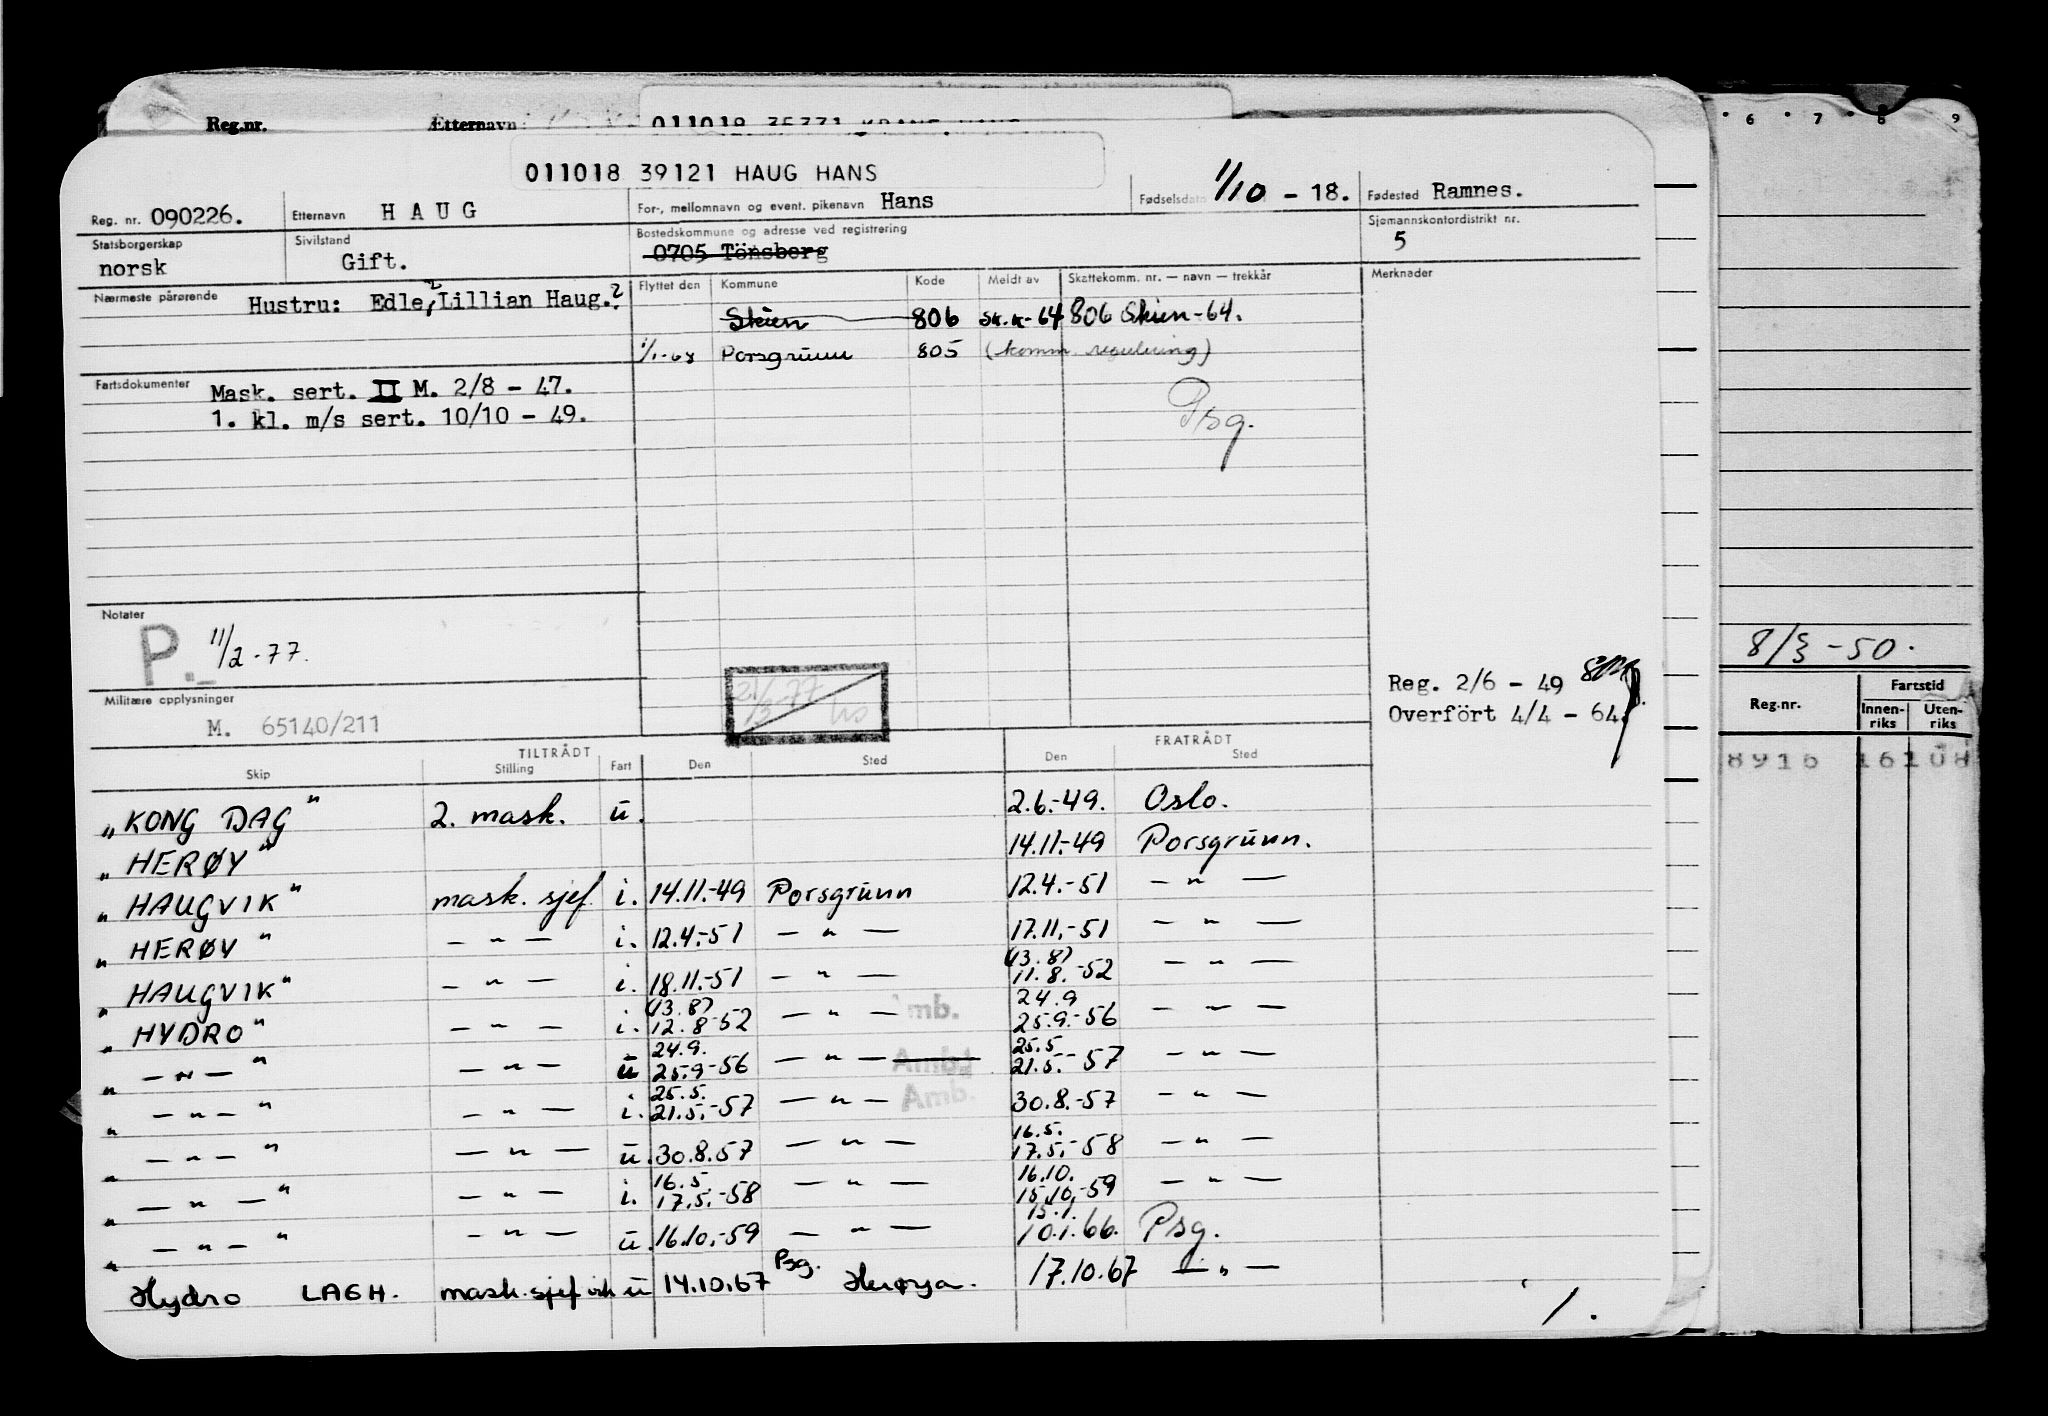 Reg.nr. Ætternavn 011018 35331 KRANE HANS
011018 39121 HAUG HANS
Reg. nr. 090226. Etternavn HAUG For-, mellomnavn og event. pikenavn Hans Fødselsdato 1/10 - 18. Fødested Ramnes.
Statsborgerskap norsk Sivilstand Gift. Bostedskommune og adresse ved registrering 0705 Tönsberg Sjømannskontordistrikt nr. 5
Nærmeste pårørende Hustru: Edle, Lillian Haug.
Flyttet den Kommune Kode Meldt av Skattekomm. nr. — navn — trekkår Merknader
Skien 806 Sk.k-64 806 Skien-64.
1/1-68 Porsgrunn 805 (komm. regulering)
Psg.
Fartsdokumenter Mask. sert. II M. 2/8 - 47.
1. kl. m/s sert. 10/10 - 49.
Notater
P. 11/2-77.
Militære opplysninger
M. 65140/211
Reg. 2/6 - 49
Overfört 4/4 - 64.
TILTRÅDT FRATRÅDT
Skip Stilling Fart Den Sted Den Sted
"KONG DAG" 2. mask. u. 2.6.-49. Oslo.
"HERØY" 14.11.-49 Porsgrunn.
"HAUGVIK" mask. sjef. i. 14.11.-49 Porsgrunn 12.4.-51 — " —
"HERØY" — " — i. 12.4.-51 — " — 17.11.-51 — " —
"HAUGVIK" — " — i. 18.11.-51 — " — (13.8) 11.8.-52 — " —
"HYDRO" — " — i. (13.8) 12.8-52 — " — mb. 24.9 25.9.-56 — " —
" — " — " — " — u 24.9. 25.9-56 — " — Amb. 25.5 21.5.-57 — " —
" — " — " — " — i. 25.5. 21.5.-57 — " — Amb. 30.8.-57 — " —
" — " — " — " — u. 30.8.57 — " — 16.5. 17.5.-58 — " —
" — " — " — " — i. 16.5. 17.5.-58 — " — 16.10. 15.10.-59 — " —
" — " — " — " — u. 16.10.-59 — " — 15.1. 10.1.66. Psg.
Hydro LAGH. mask.sjef u 14.10.67 Psg. Herøya. 17.10.67 — " —
1.
6 7 8 9
8/3 - 50.
Reg.nr. Fartstid
Innenriks Utenriks
8916 16108